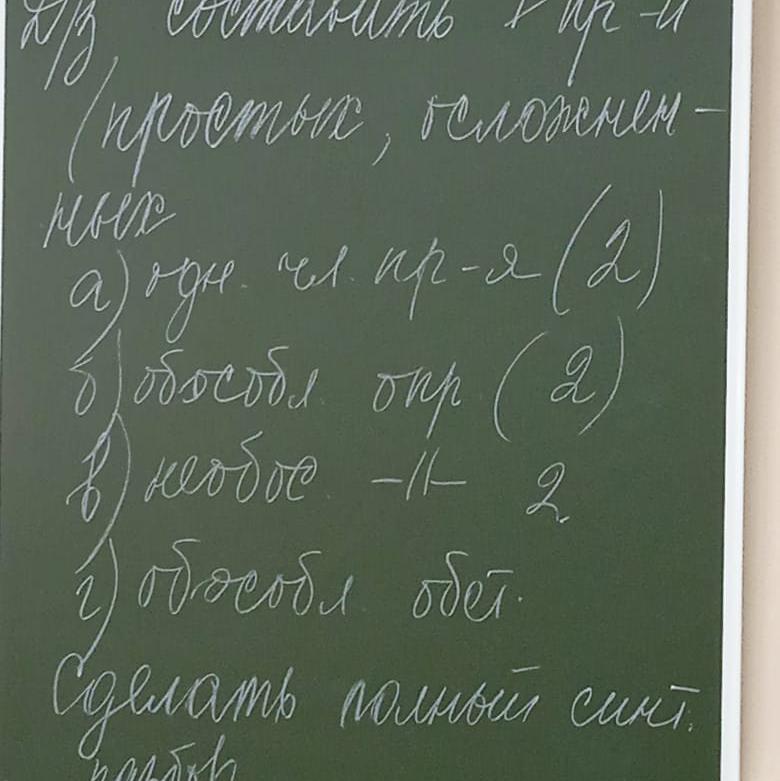 Д/з составить пр-й
(простых, осложнен-
ных
а) одн. чл. пр-я (2)
б) обособл опр (2)
в) необос -||- 2
г) обособл обст.
Сделать полный синт.
разбор